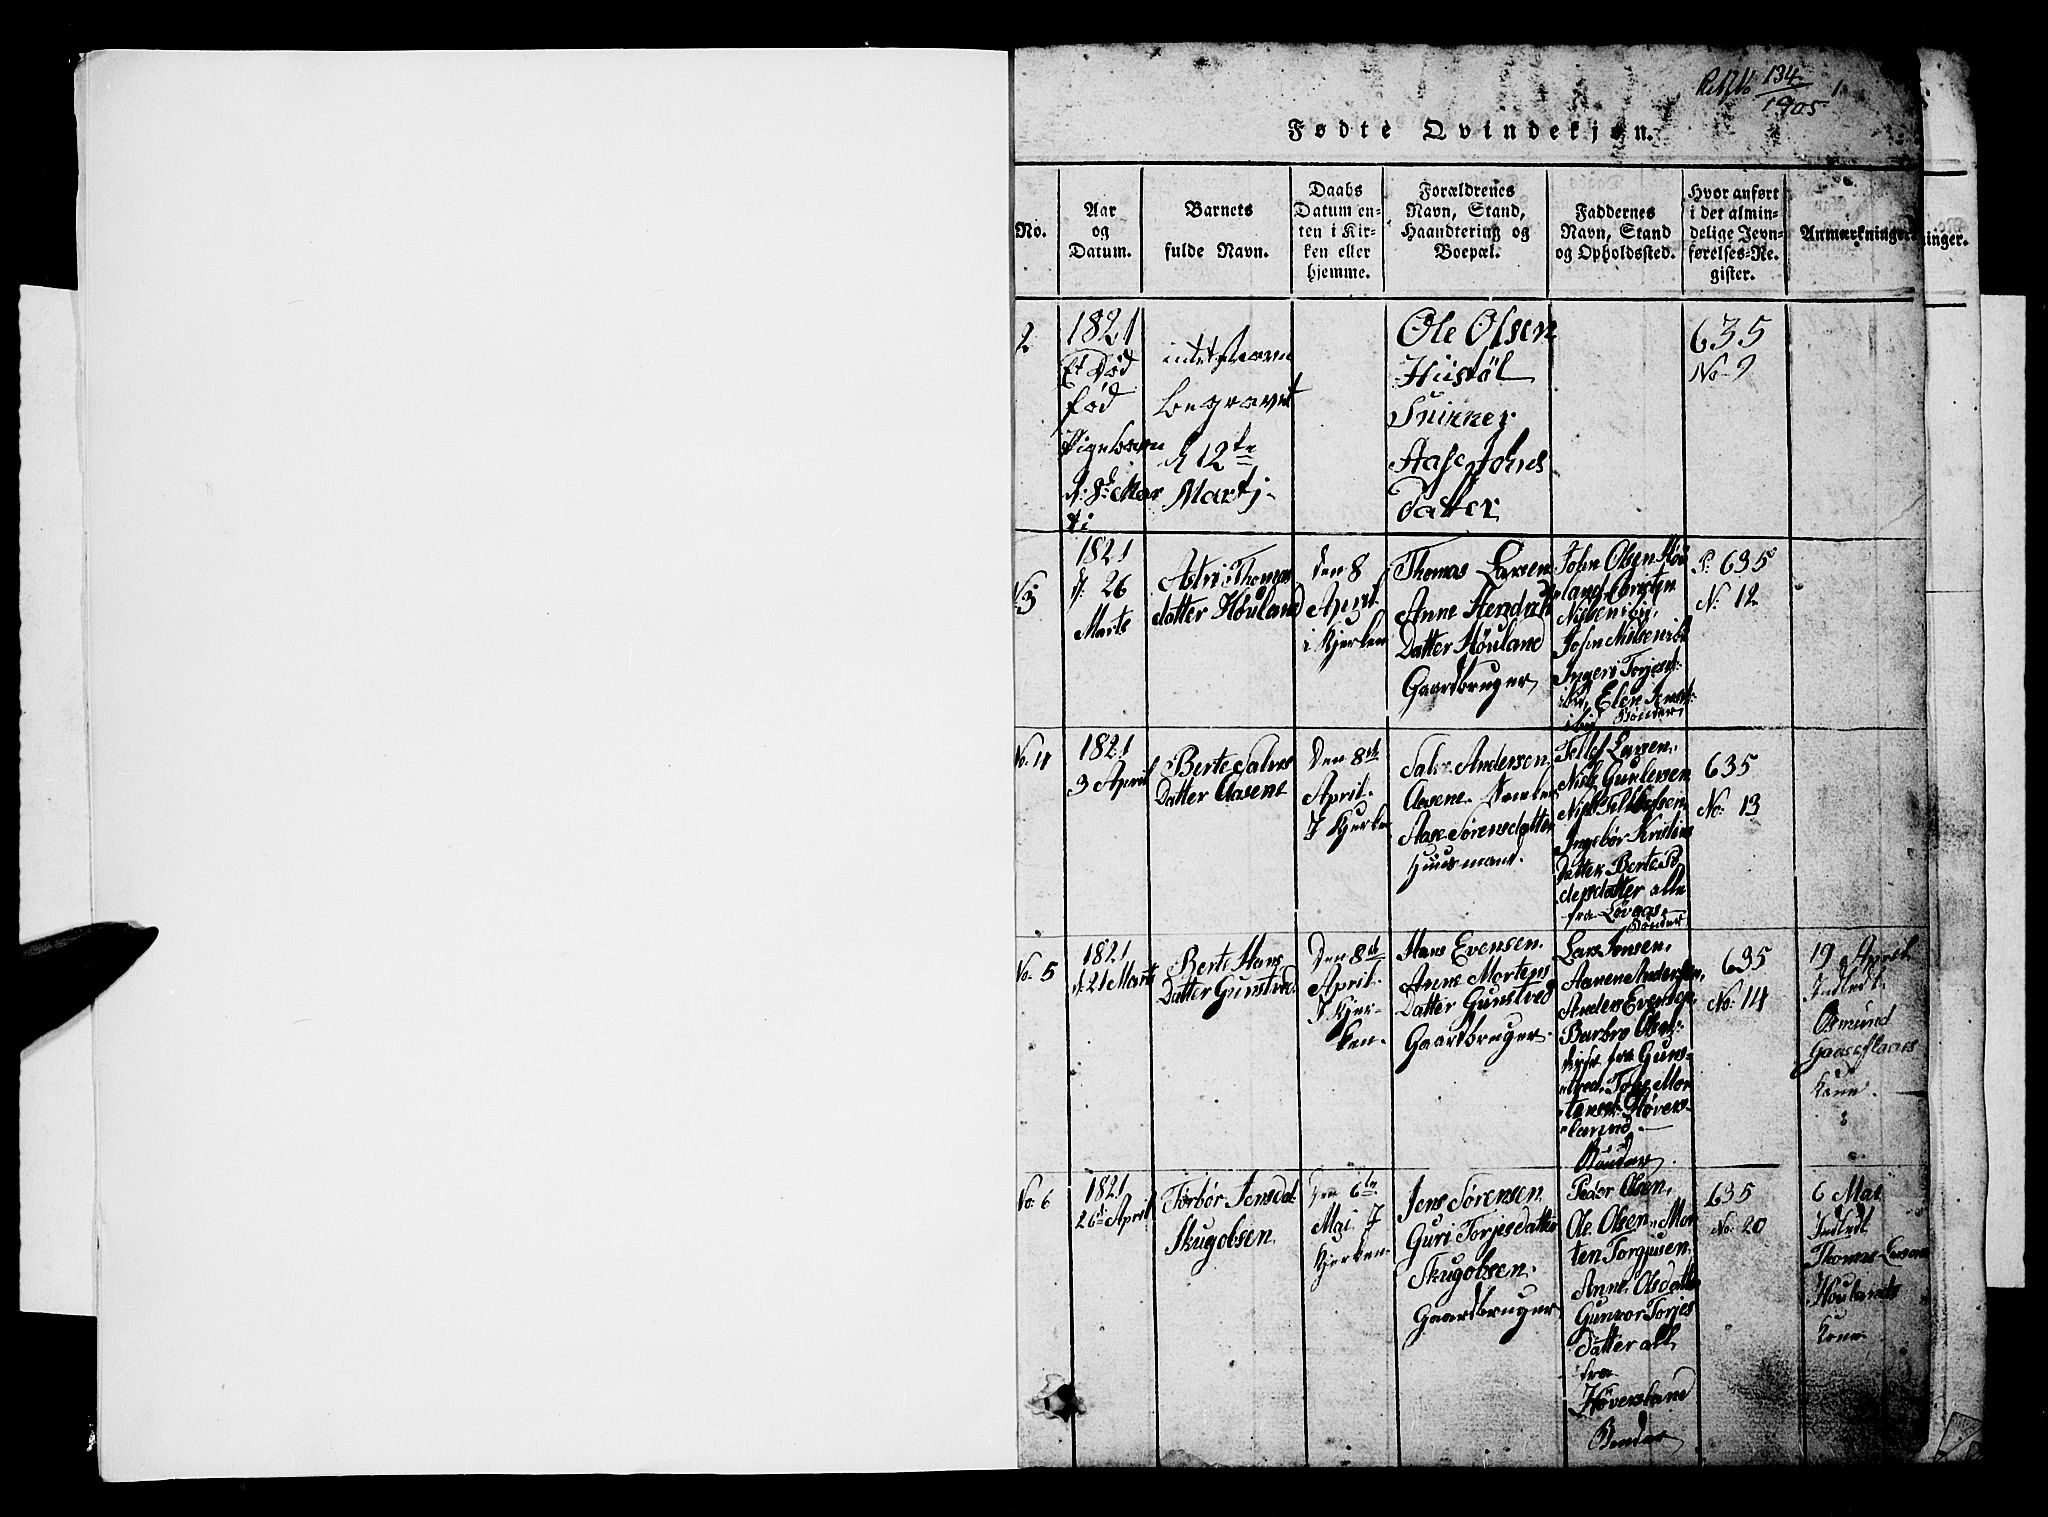 134
1905
1
Fødte Qvindekjøn.
No.
Aar
og
Datum.
Barnets
fulde Navn.
Daabs
Datum en-
ten i Kir-
ken eller
hjemme.
Forældrenes
Navn, Stand,
Haandtering og
Boepæl.
Faddernes
Navn, Stand
og Opholdssted.
Hvor anført
i det almin-
delige Jevn-
førelses-Re-
gister.
Anmærkninger
ninger.
2
1821
Et Død
fød
Pigebarn
d: 8de Mar
ti
begravet
d 12te
Martj
Ole Olsen
Hustøl
Snikker
Aase Johns
Datter
635
No 9
No 3
1821
d. 26
Marts
Astri Thomas
datter Høuland
Den 8
April
i Kjerken
Thomas Larsen
Anne
Datter Høuland
Gaardbruger
John Olsen Høu
land
John Nilsen
Ingeri
Elen
Bønder
P: 635
N: 12
No. 4
1821
3 April
Berte Salves
Datter Aasene
Den 8de
April
I Kjerken
Salve Andersen
Aasene
Aase Sørensdatter
Huusmand.
Tellef Larsen
Niels Gunlersen
Niels Tellefsen
Ingebør Kristens
Datter Berte
datter alle
fra
Bønder
635
No: 13
No. 5
1821
d: 21 Marts
Berte Hans
Datter Gunstved
Den 8de
April
I Kjer-
ken
Hans Evensen
Anne Mortens
Datter Gunstved
Gaardbruger
Lars Jensen,
Andersen,
Anders Evensen,
Barbro
fra Guns-
tved. Mor
tensen Høvers-
land
Bønder
635
No: 14
19 April
Indledt
Osmund
Gaaseflaaes
Kone
No: 6
1821
26de April
Torbør Jensdat
Skugobsen
Den 6te
Mai I
Kjerken
Jens Sørensen
Guri Torjesdatter
Skugobsen
Gaardbruger
Peder Olsen,
Ole Olsen, Mor
ten Torgjusen
Anne Olsdatter
Gunvor Torjes
datter all
fra
Høversland
Bønder
635
No: 20
6 Mai
Indledt
Thomas Larsens
Høulands
Kone